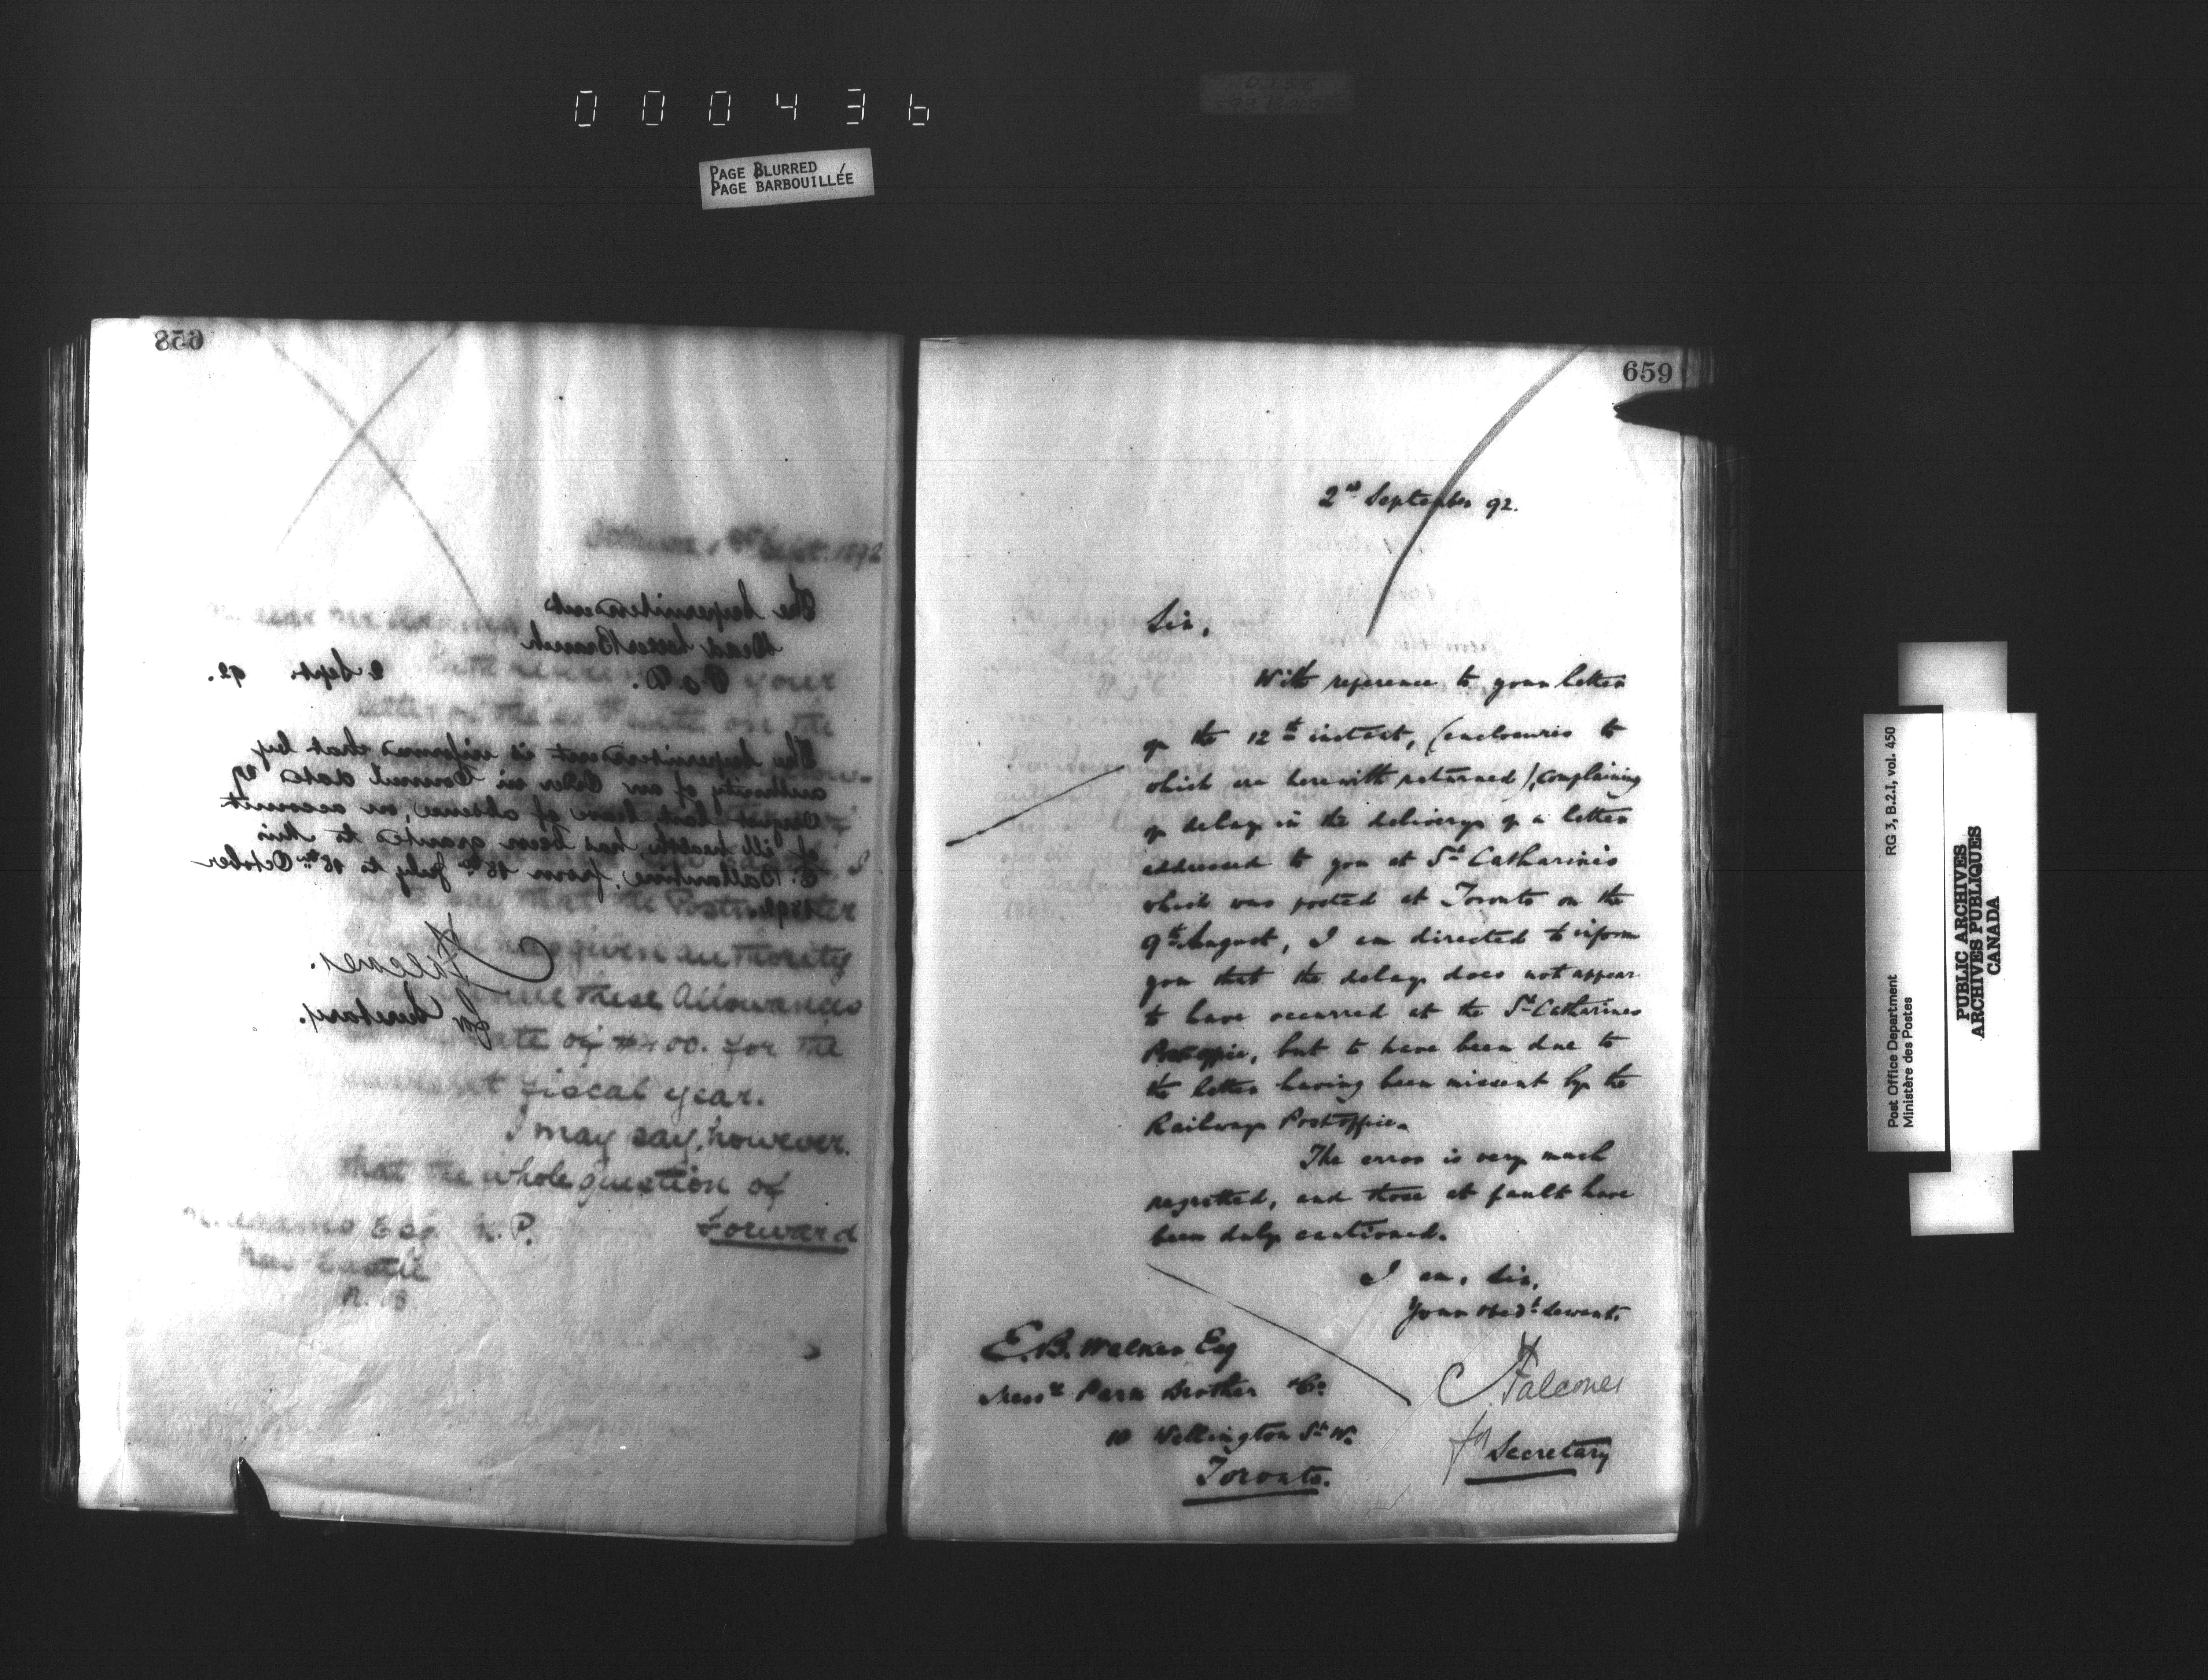 000436
PAGE BLURRED
PAGE BARBOUILLÉE
658
Sept. 1892
The Superintendent
Dead Letter Branch
P.O.D. 2 Sept. 92.
your
letter of the on the
The Superintendent is informed that by
authority of an Order in Council dated 29
August last leave of absence, on account
of ill health, has been granted to Miss
E. Ballantine, from 18th July to 18th October
say that the Postmaster
given authority
these Allowances
of $400. for the
fiscal year.
I may say, however.
that the whole question of
Esq M.P. Forward
New Castle
N.B.
Falconer.
for Secretary.
659
2nd September 92.
Sir,
With reference to your letter
of the 12th instant, (enclosures to
which are herewith returned) complaining
of delay in the delivery of a letter
addressed to you at St Catharines
which was posted at Toronto on the
9th August, I am directed to inform
you that the delay does not appear
to have occurred at the St Catharines
Postoffice, but to have been due to
the letter having been missent by the
Railway Postoffice.
The error is very much
regretted, and those at fault have
been duly cautioned.
I am, Sir,
Your Obedt Servant.
E.B. Walker Esq
Messrs Park Brother & Co
10 Wellington St W.
Toronto.
Falconer
for Secretary
Post Office Department
Ministère des Postes
RG 3, B.2.I, vol. 450
PUBLIC ARCHIVES
ARCHIVES PUBLIQUES
CANADA